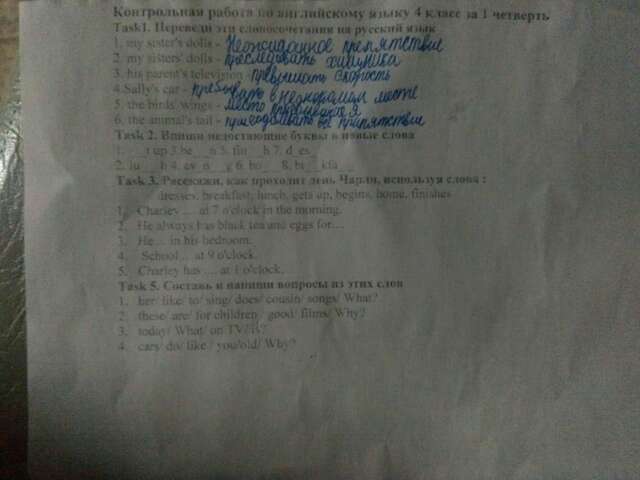 Контрольная работа по английскому языку 4 класс за 1 четверть
Task1. Переведи эти словосочетания на русский язык
1. my sister's dolls - Неожиданное препятствие
2. my sisters' dolls - преследовать хищника
3. his parent's television - превышать скорость
4.Sally's car - пребывать в незнакомом месте
5. the birds' wings - место
6. the animal's tail - препятствие
Task 2. Впиши недостающие буквы в новые слова
Task 3. Расскажи, как проходит день Чарли, используя слова :
dresses, breakfast, lunch, gets up, begins, home, finishes
1. Charley ... at 7 o'clock in the morning.
2. He always has black tea and eggs for...
3. He... in his bedroom.
4. School... at 9 o'clock.
5. Charley has ... at 1 o'clock.
Task 5. Составь и напиши вопросы из этих слов
1. her/ like/ to/ sing/ does/ cousin/ songs/ What?
2. these/ are/ for children/ good/ films/ Why?
3. today/ What/ on TV/is?
4. cars/ do/ like / you/old/ Why?